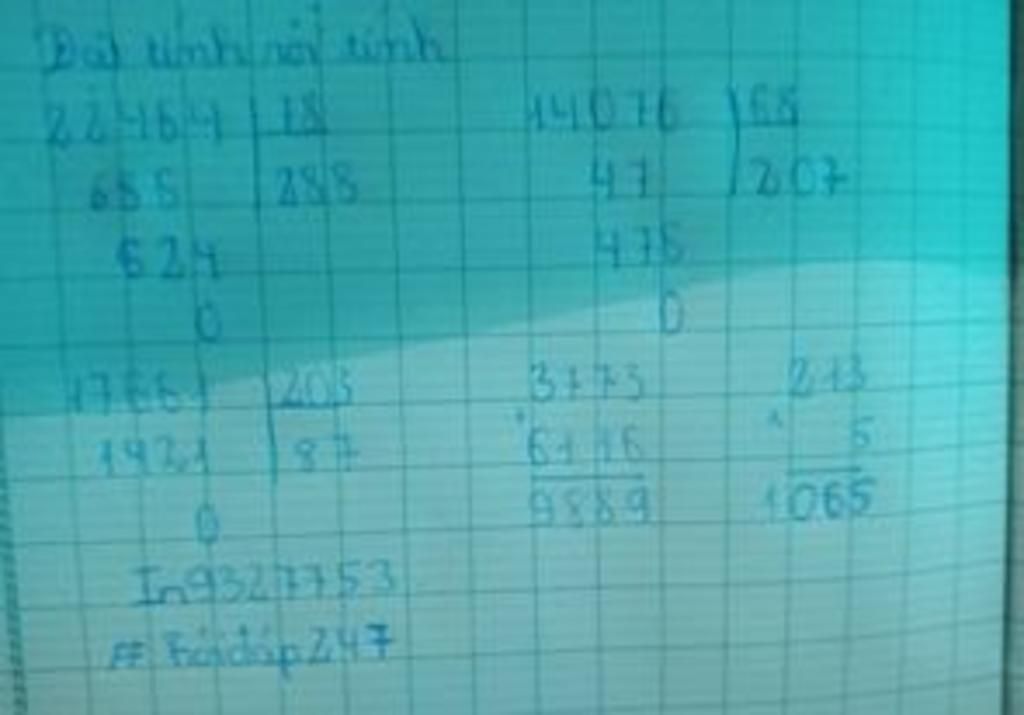 Đặt tính rồi tính
22464 18
14076 68
688 288
47 207
624
476
0
0
17661 203
3773
213
1421 87
6116
5
0
9889
1065
In9327753
## hỏiđáp247